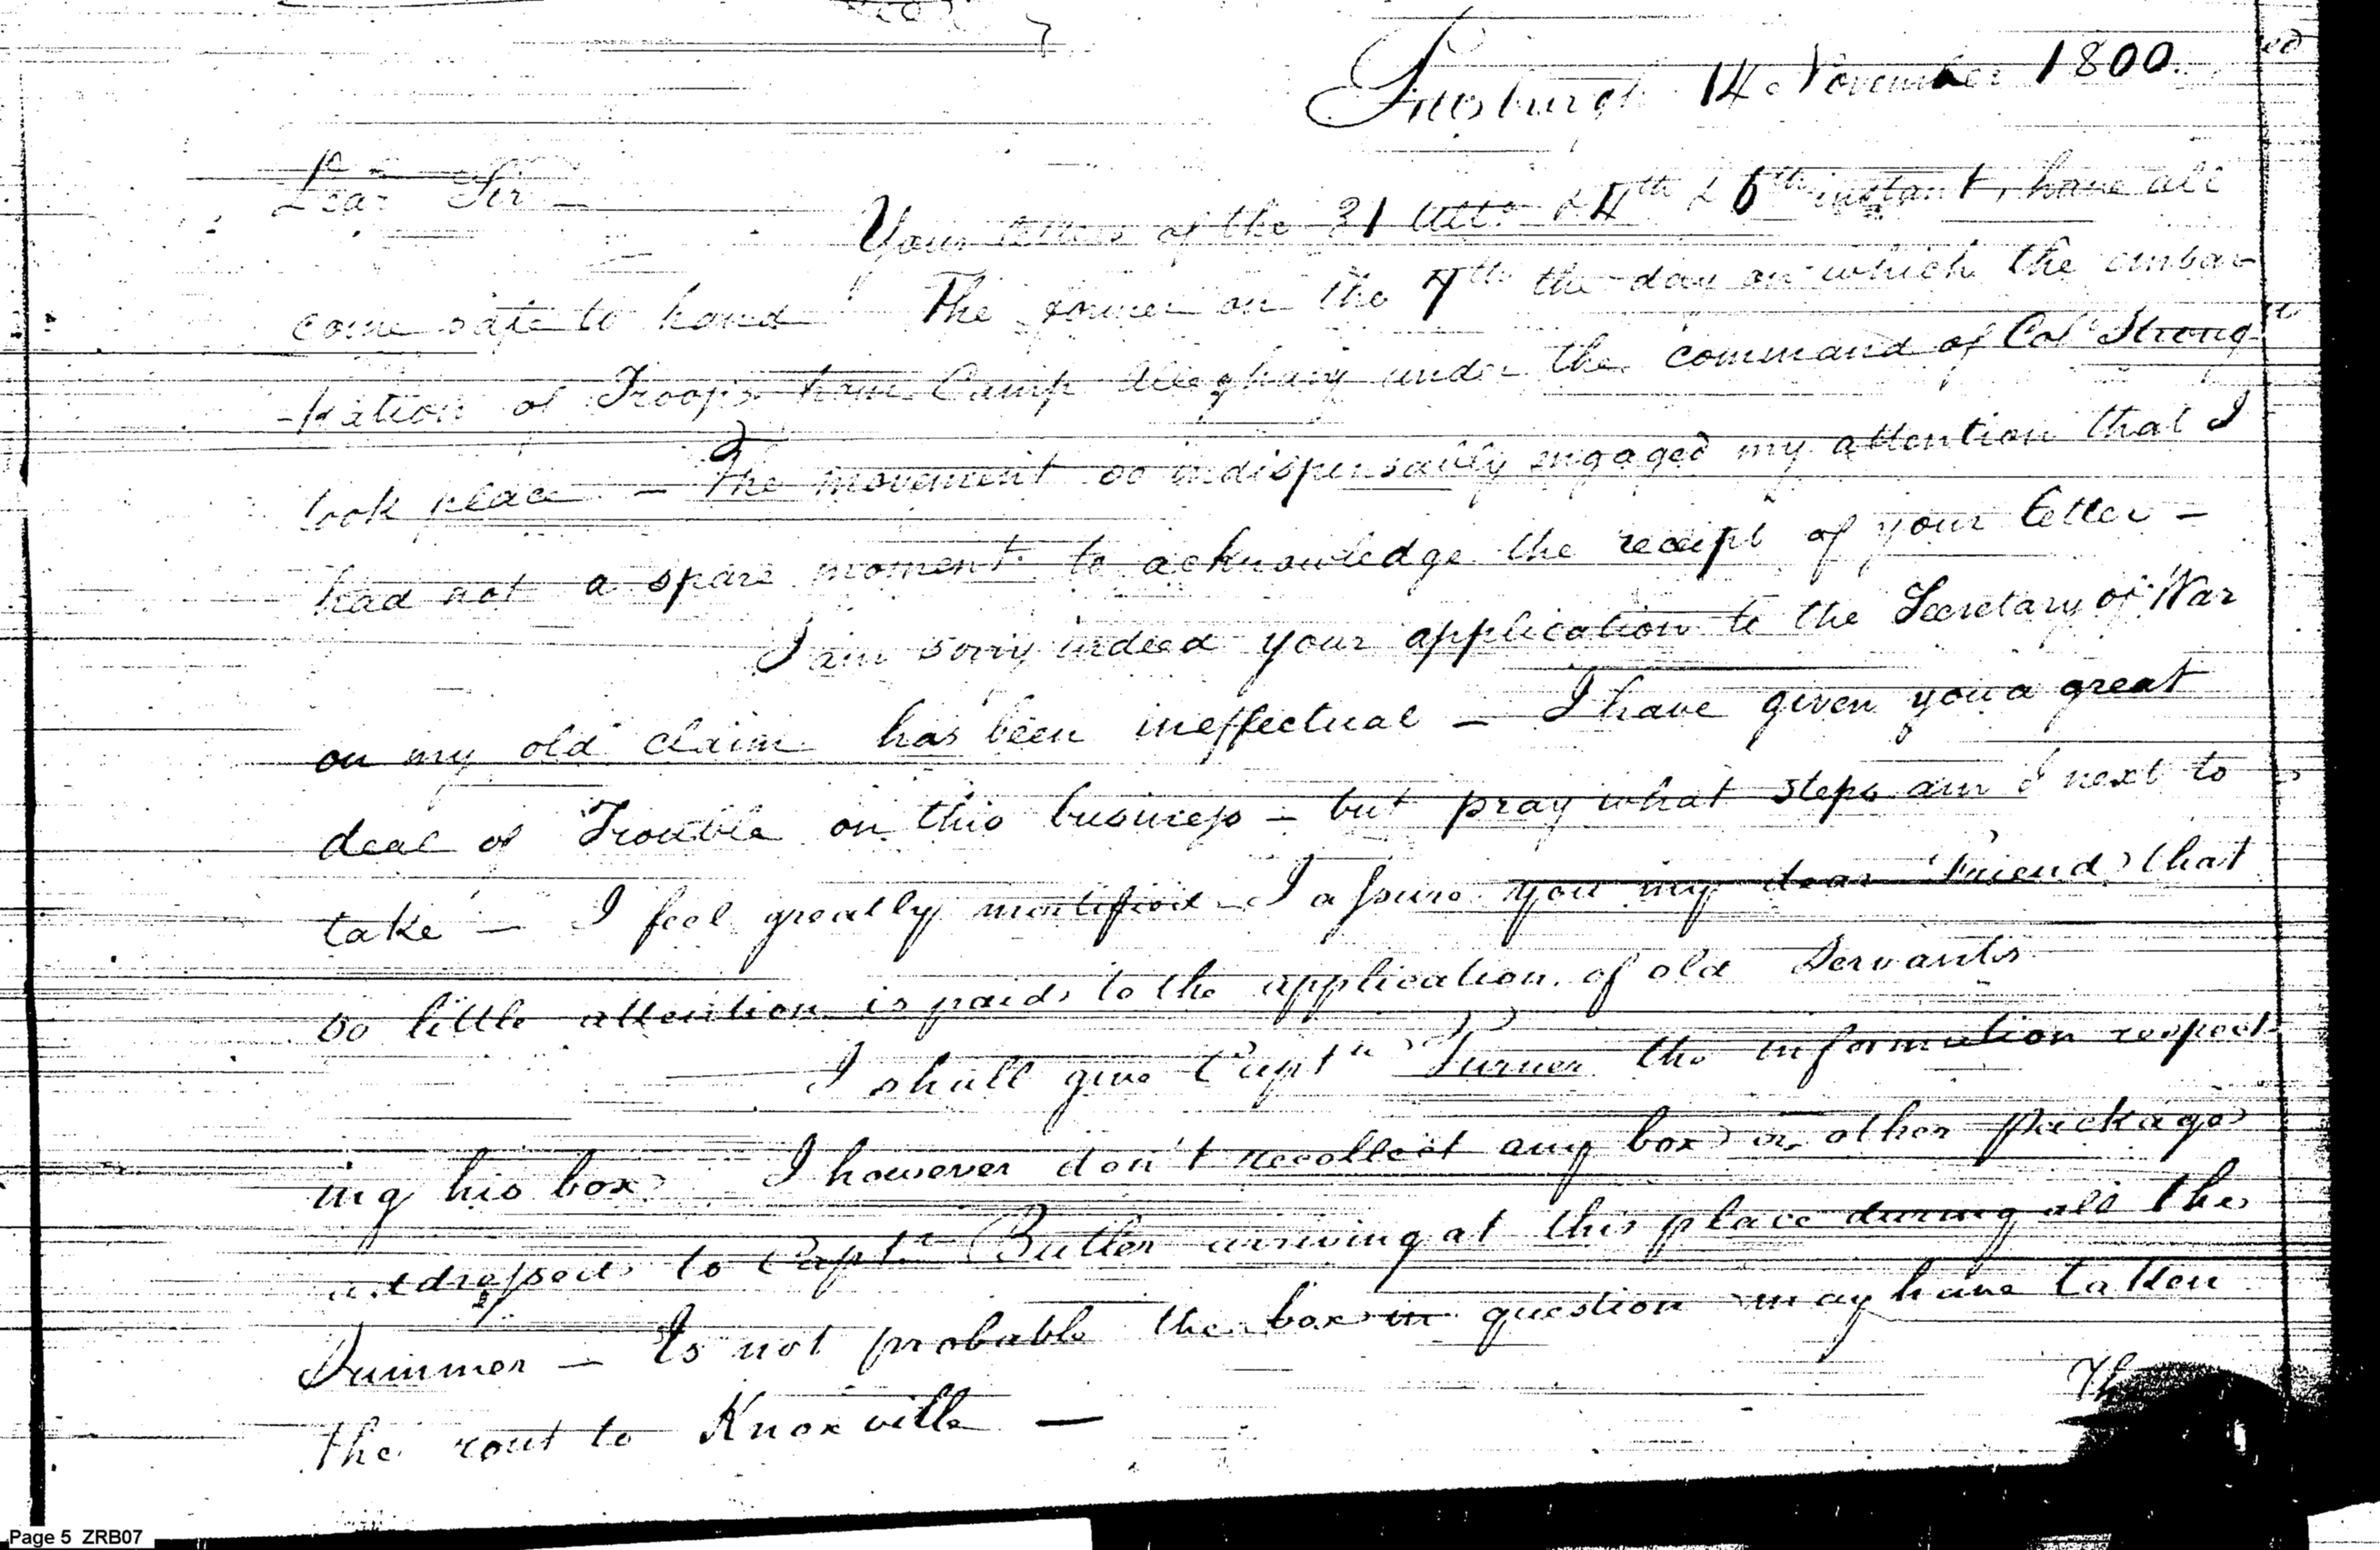 Pittsburgh 14 November 1800.
Dear Sir
Your letters of the 31 Ulto. & 4th & 6th instant, have all
come safe to hand The former on the 7th the day on which the embar
-kation of Troops from Camp Alleghany under the command of Col Strong
took place — The movement so indispensably engaged my attention that I
had not a spare moment to acknowledge the receipt of your letter —
I am sorry indeed your application to the Secretary of War
on my old claim has been ineffectual — I have given you a great
deal of Trouble on this business — but pray what steps am I next to
take — I feel greatly mortified I assure you my dear Friend that
so little attention is paid to the application of old Servants
I shall give Captn Turner the information respect-
ing his box I however don't recollect any box or other package
addressed to Captn Butler arriving at this place during all the
Summer — Is not probable the box in question may have taken
the rout to Knoxville —
Th
Page 5 ZRB07